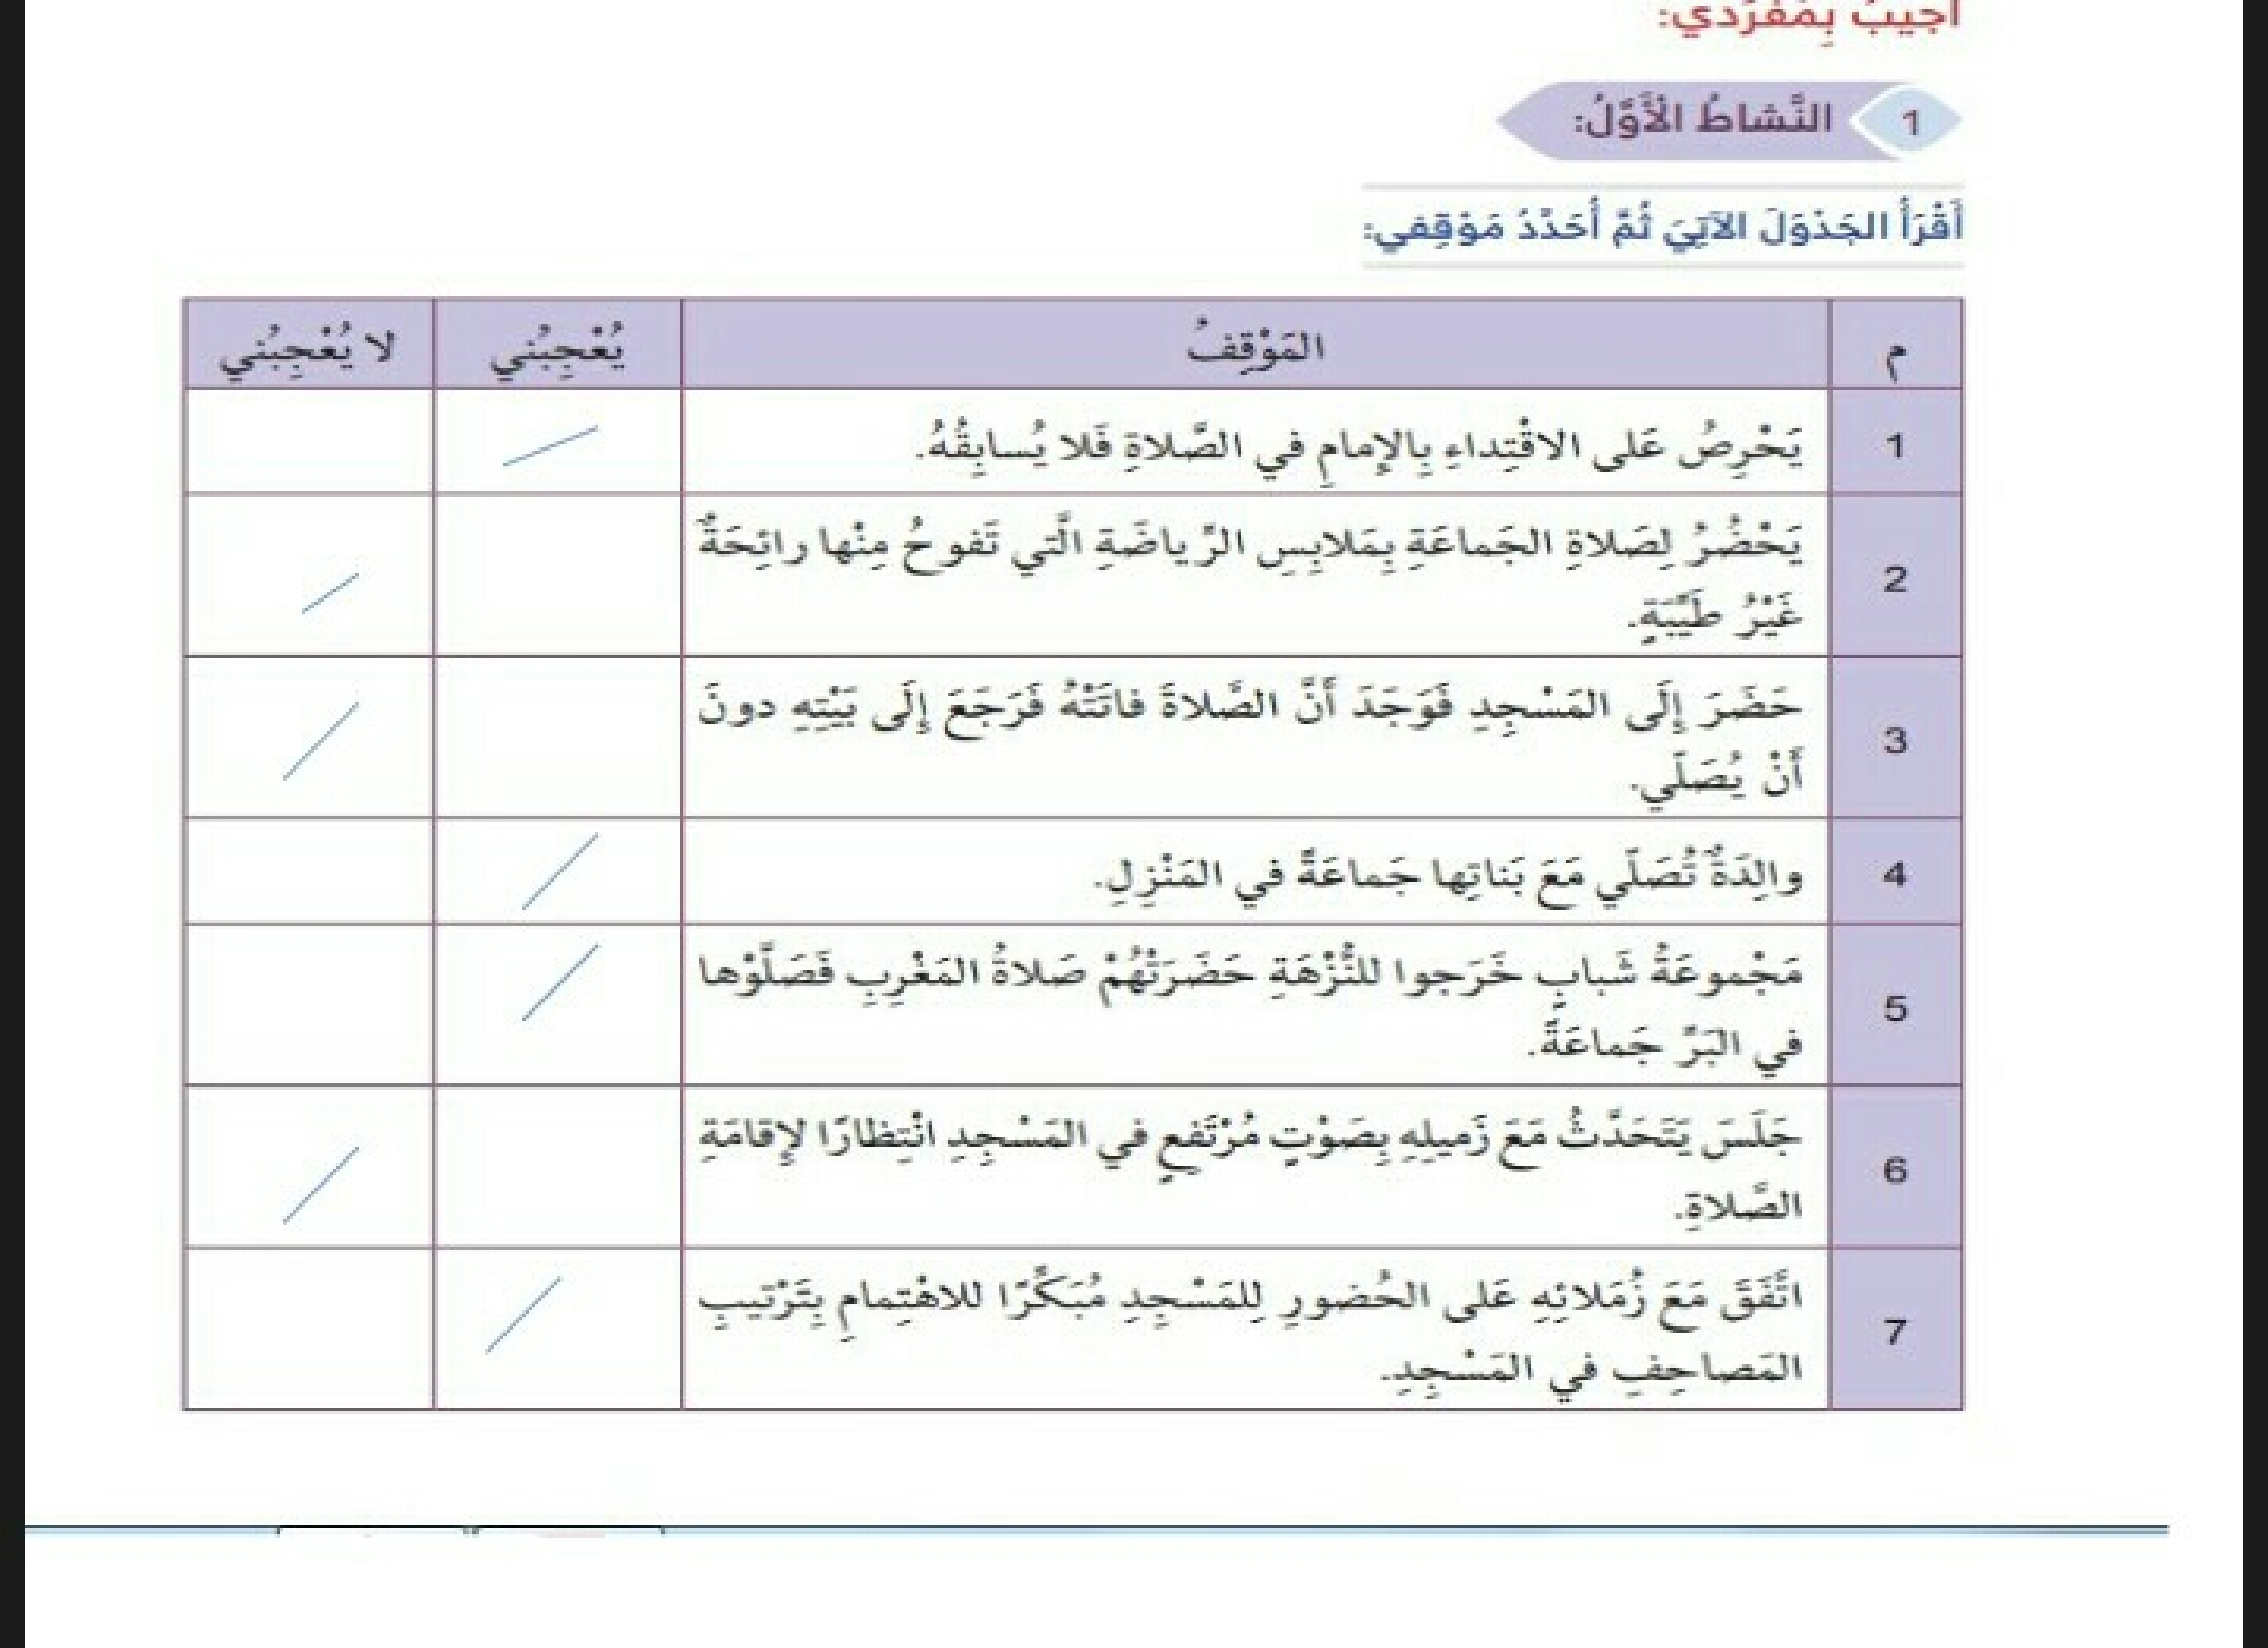 أُجيبُ بِمُفْرَدي:
1 النَّشاطُ الْأَوَّلُ:
أَقْرَأُ الجَدْوَلَ الآتِيَ ثُمَّ أُحَدِّدُ مَوْقِفي:
م المَوْقِفُ يُعْجِبُني لا يُعْجِبُني
1 يَحْرِصُ عَلى الاقْتِداءِ بِالإِمامِ في الصَّلاةِ فَلا يُسابِقُهُ.
2 يَحْضُرُ لِصَلاةِ الجَماعَةِ بِمَلابِسِ الرِّياضَةِ الَّتي تَفوحُ مِنْها رائِحَةٌ
غَيْرُ طَيِّبَةٍ.
3 حَضَرَ إِلَى المَسْجِدِ فَوَجَدَ أَنَّ الصَّلاةَ فاتَتْهُ فَرَجَعَ إِلَى بَيْتِهِ دونَ
أَنْ يُصَلّي.
4 والِدَةٌ تُصَلّي مَعَ بَناتِها جَماعَةً في المَنْزِلِ.
5 مَجْموعَةُ شَبابٍ خَرَجوا للنُّزْهَةِ حَضَرَتْهُمْ صَلاةُ المَغْرِبِ فَصَلَّوْها
في البَرِّ جَماعَةً.
6 جَلَسَ يَتَحَدَّثُ مَعَ زَميلِهِ بِصَوْتٍ مُرْتَفِعٍ في المَسْجِدِ انْتِظارًا لِإقامَةِ
الصَّلاةِ.
7 اتَّفَقَ مَعَ زُمَلائِهِ عَلى الحُضورِ لِلمَسْجِدِ مُبَكِّرًا للاهْتِمامِ بِتَرْتيبِ
المَصاحِفِ في المَسْجِدِ.